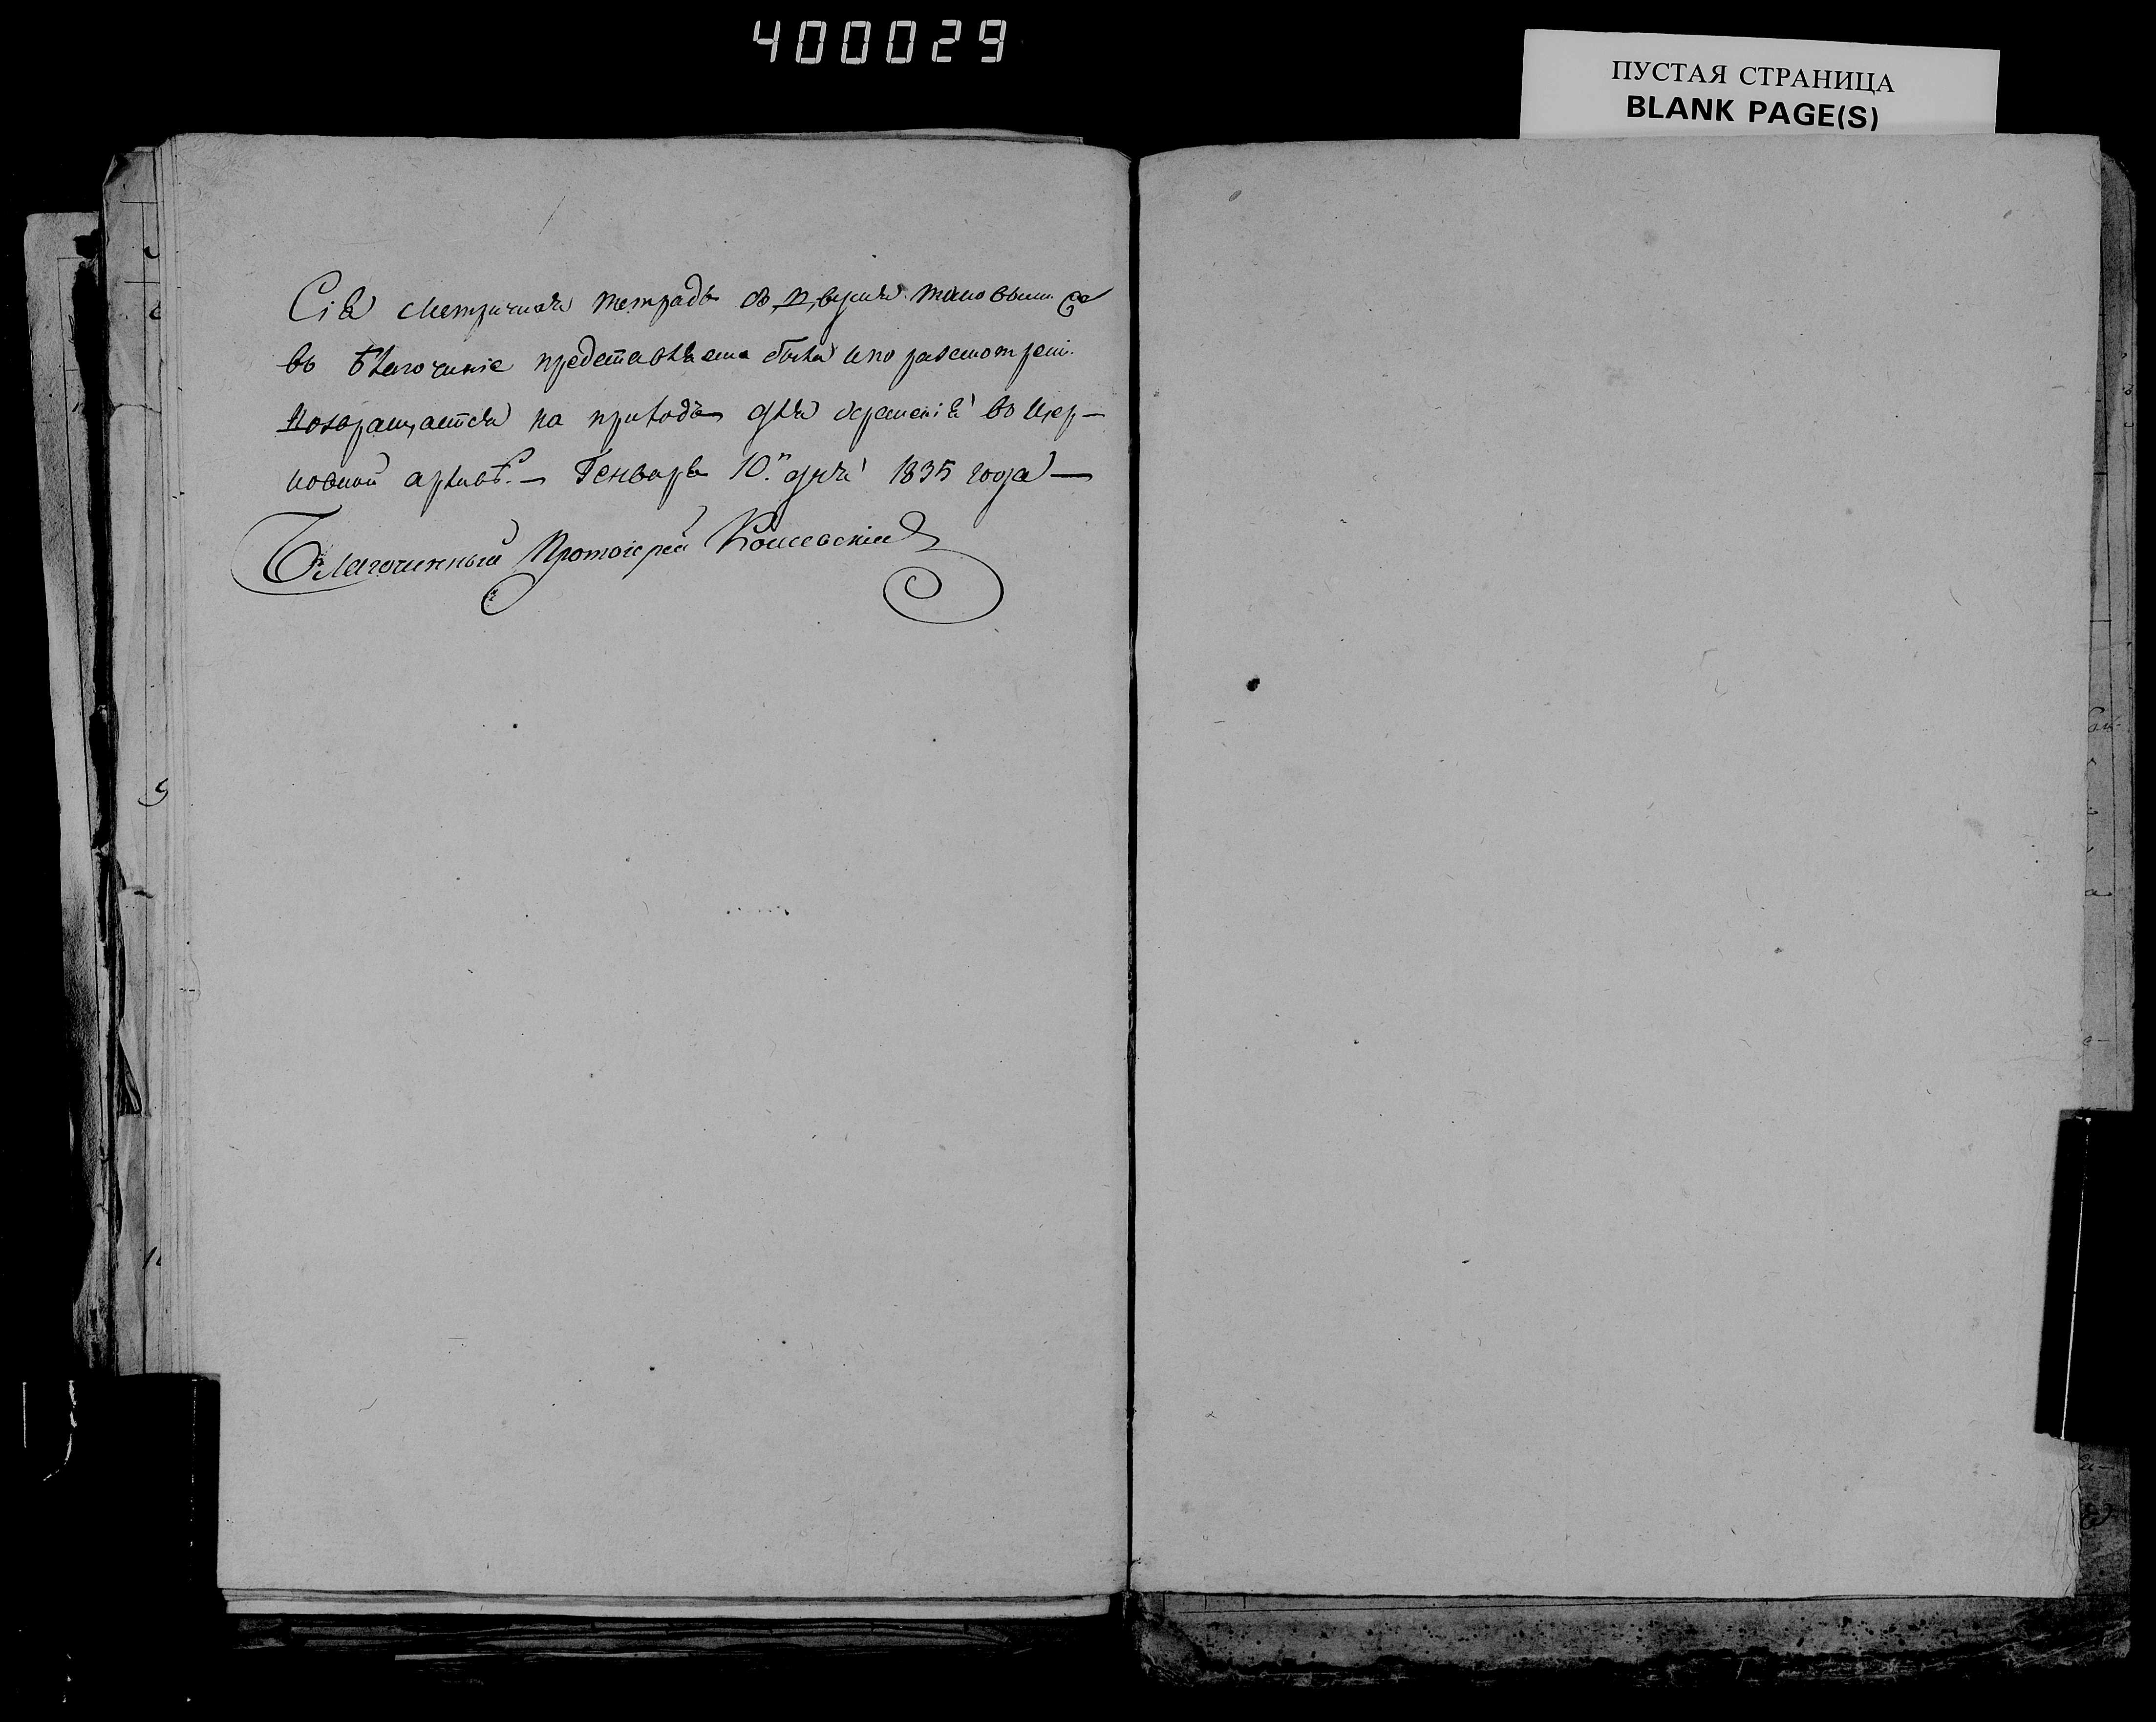 400029
ПУСТАЯ СТРАНИЦА
BLANK PAGE(S)
Сія метричная тетрадь съ двумя таковыми
въ Благочиніе представляема была и по разсмотрени.
возвращается на приходъ для храненія во Цер-
ковной архивѣ. — Генваря 10. дня 1835 года —
Благочинный Протоіерей